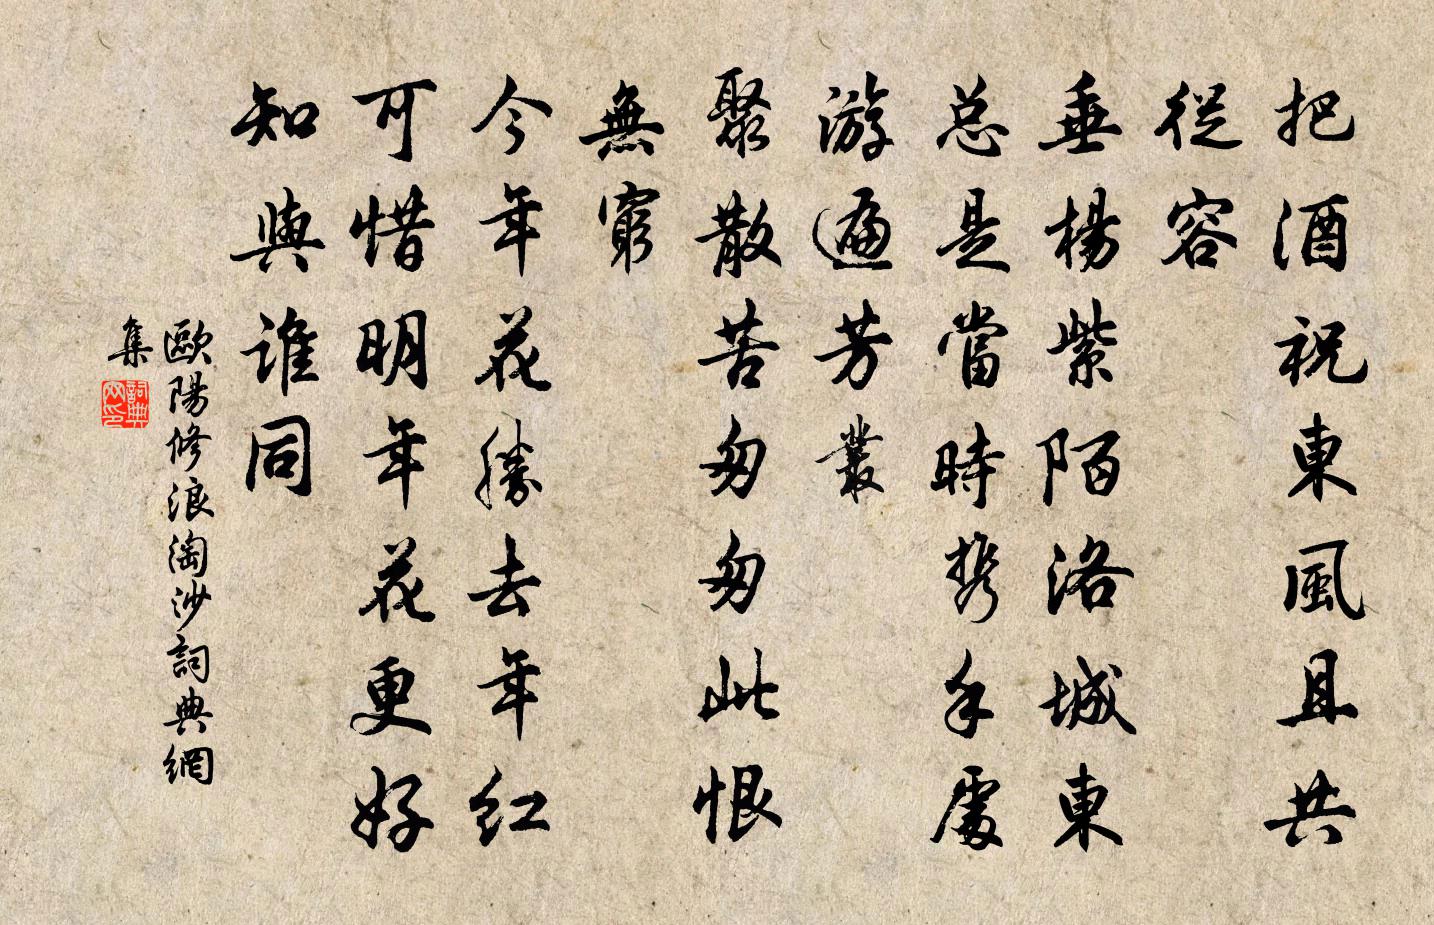 把酒祝東風且共
從容
垂楊紫陌洛城東
总是當時携手處
游遍芳叢
聚散苦匆匆此恨
無窮
今年花勝去年红
可惜明年花更好
知與誰同
歐陽修浪淘沙詞典網
集
詞典
网印